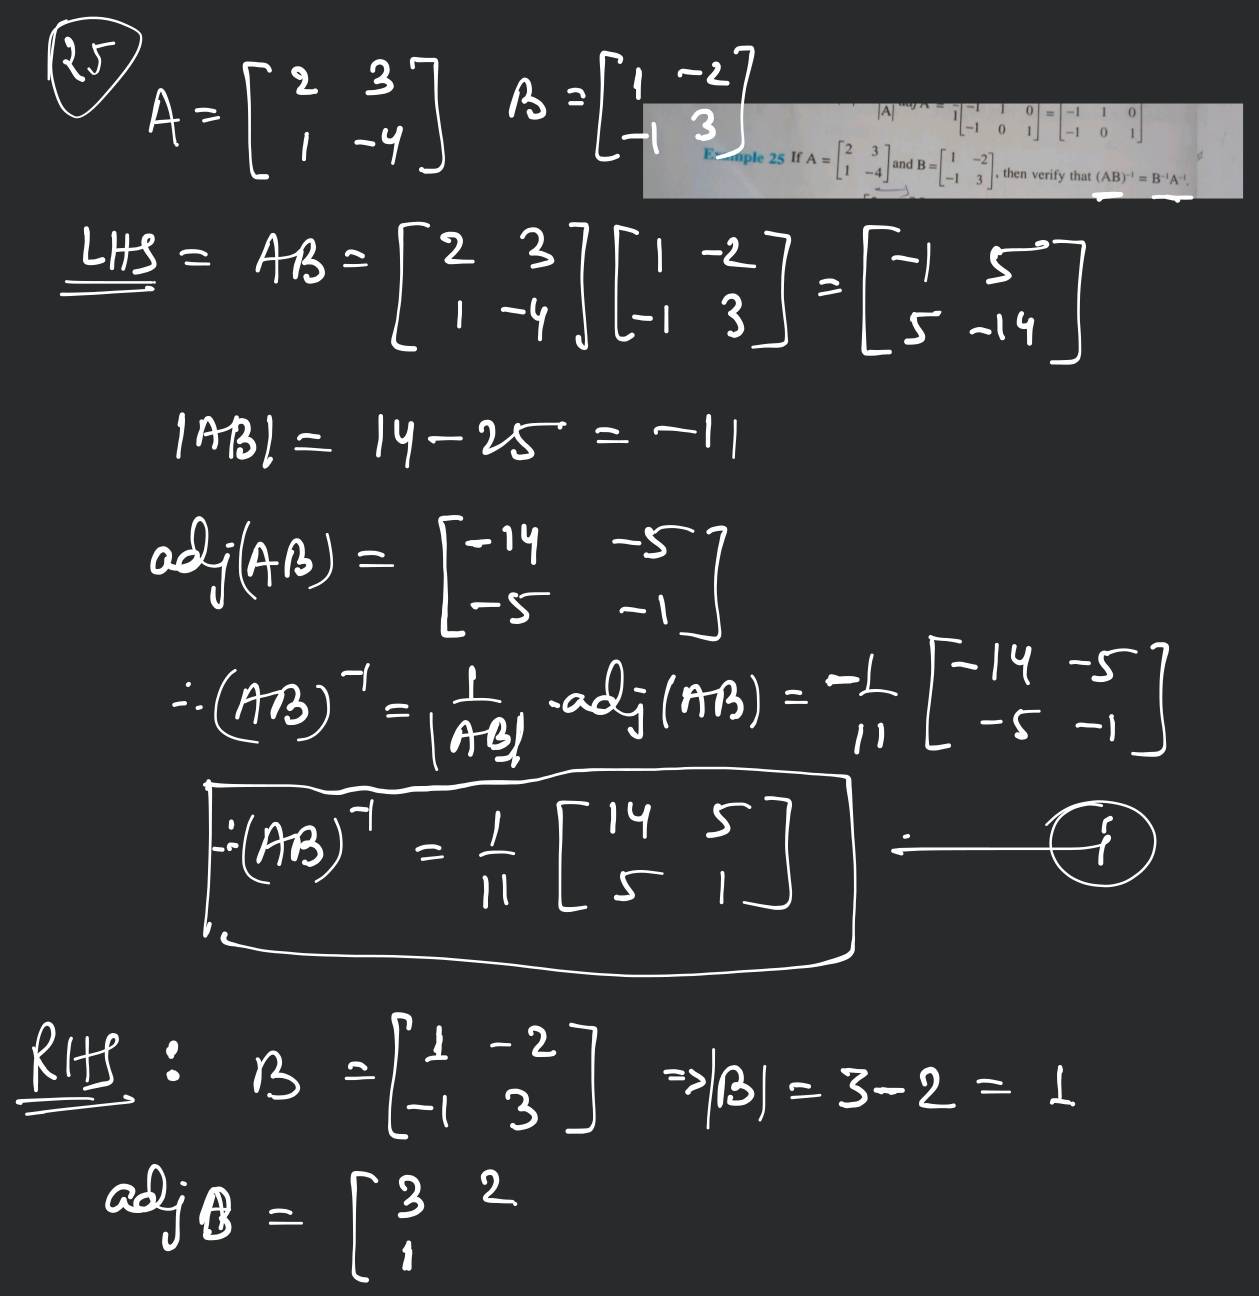 25
A = [ 2 3 ] B = [ 1 -2 ]
[ 1 -4 ] [ -1 3 ]
|A| adj A = 1 [ -1 1 0 ] = [ -1 1 0 ]
[ -1 0 1 ] [ -1 0 1 ]
Example 25 If A = [ 2 3 ] and B = [ 1 -2 ], then verify that (AB)⁻¹ = B⁻¹A⁻¹.
[ 1 -4 ] [ -1 3 ]
LHS = AB = [ 2 3 ] [ 1 -2 ] = [ -1 5 ]
[ 1 -4 ] [ -1 3 ] [ 5 -14 ]
|AB| = 14 - 25 = -11
adj(AB) = [ -14 -5 ]
[ -5 -1 ]
∴ (AB)⁻¹ = 1/|AB| . adj(AB) = -1/11 [ -14 -5 ]
[ -5 -1 ]
∴ (AB)⁻¹ = 1/11 [ 14 5 ] — i
[ 5 1 ]
RHS : B = [ 1 -2 ] => |B| = 3 - 2 = 1
[ -1 3 ]
adj B = [ 3 2
[ 1